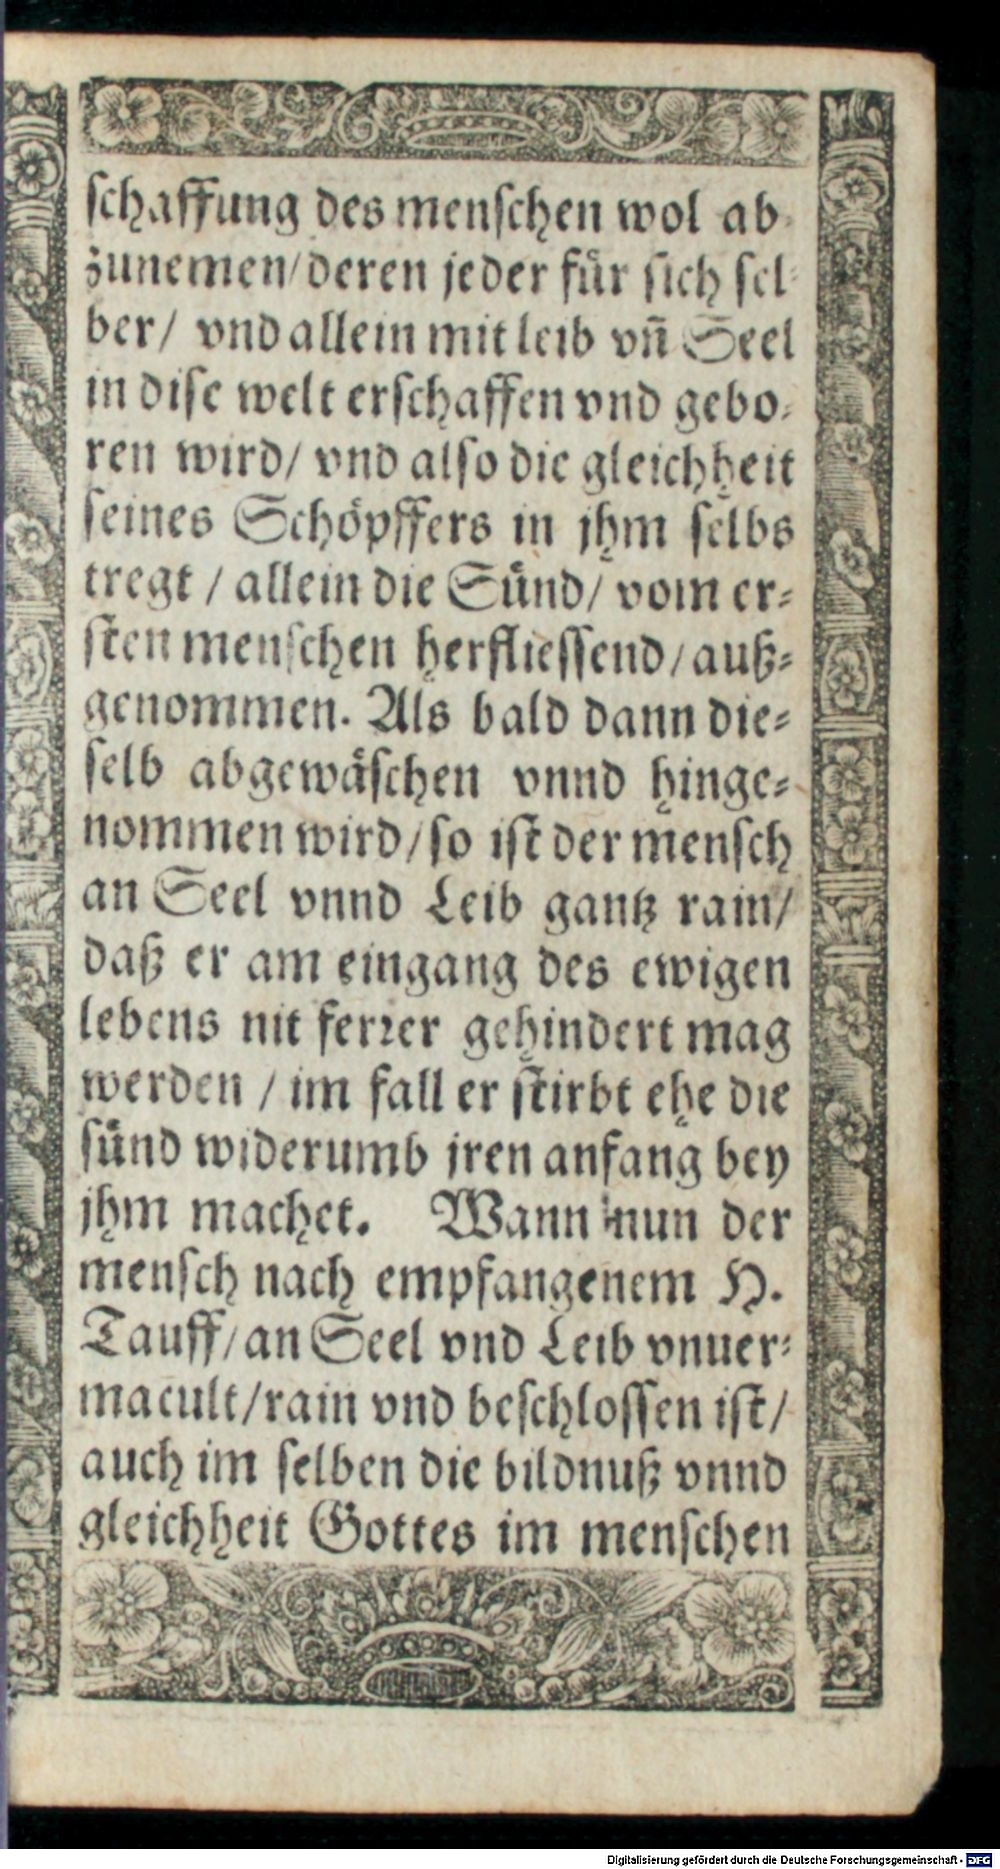 schaffung des menschen wol ab-
zunemen/deren jeder für sich sel-
ber/ vnd allein mit leib vñ Seel
in dise welt erschaffen vnd gebo-
ren wird/ vnd also die gleichheit
seines Schöpffers in jhm selbs
tregt / allein die Sünd/ vom er-
sten menschen herfliessend/auß-
genommen. Als bald dann die-
selb abgewäschen vnnd hinge-
nommen wird/so ist der mensch
an Seel vnnd Leib gantz rain/
daß er am eingang des ewigen
lebens nit ferrer gehindert mag
werden / im fall er stirbt ehe die
sünd widerumb jren anfang bey
jhm machet. Wann nun der
mensch nach empfangenem H.
Tauff/an Seel vnd Leib vnuer-
macult/rain vnd beschlossen ist/
auch im selben die bildnuß vnnd
gleichheit Gottes im menschen
Digitalisierung gefördert durch die Deutsche Forschungsgemeinschaft - DFG